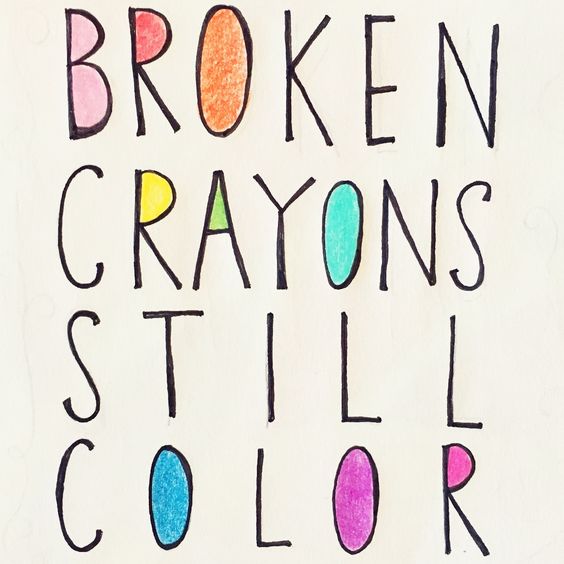 BROKEN
CRAYONS
STILL
COLOR